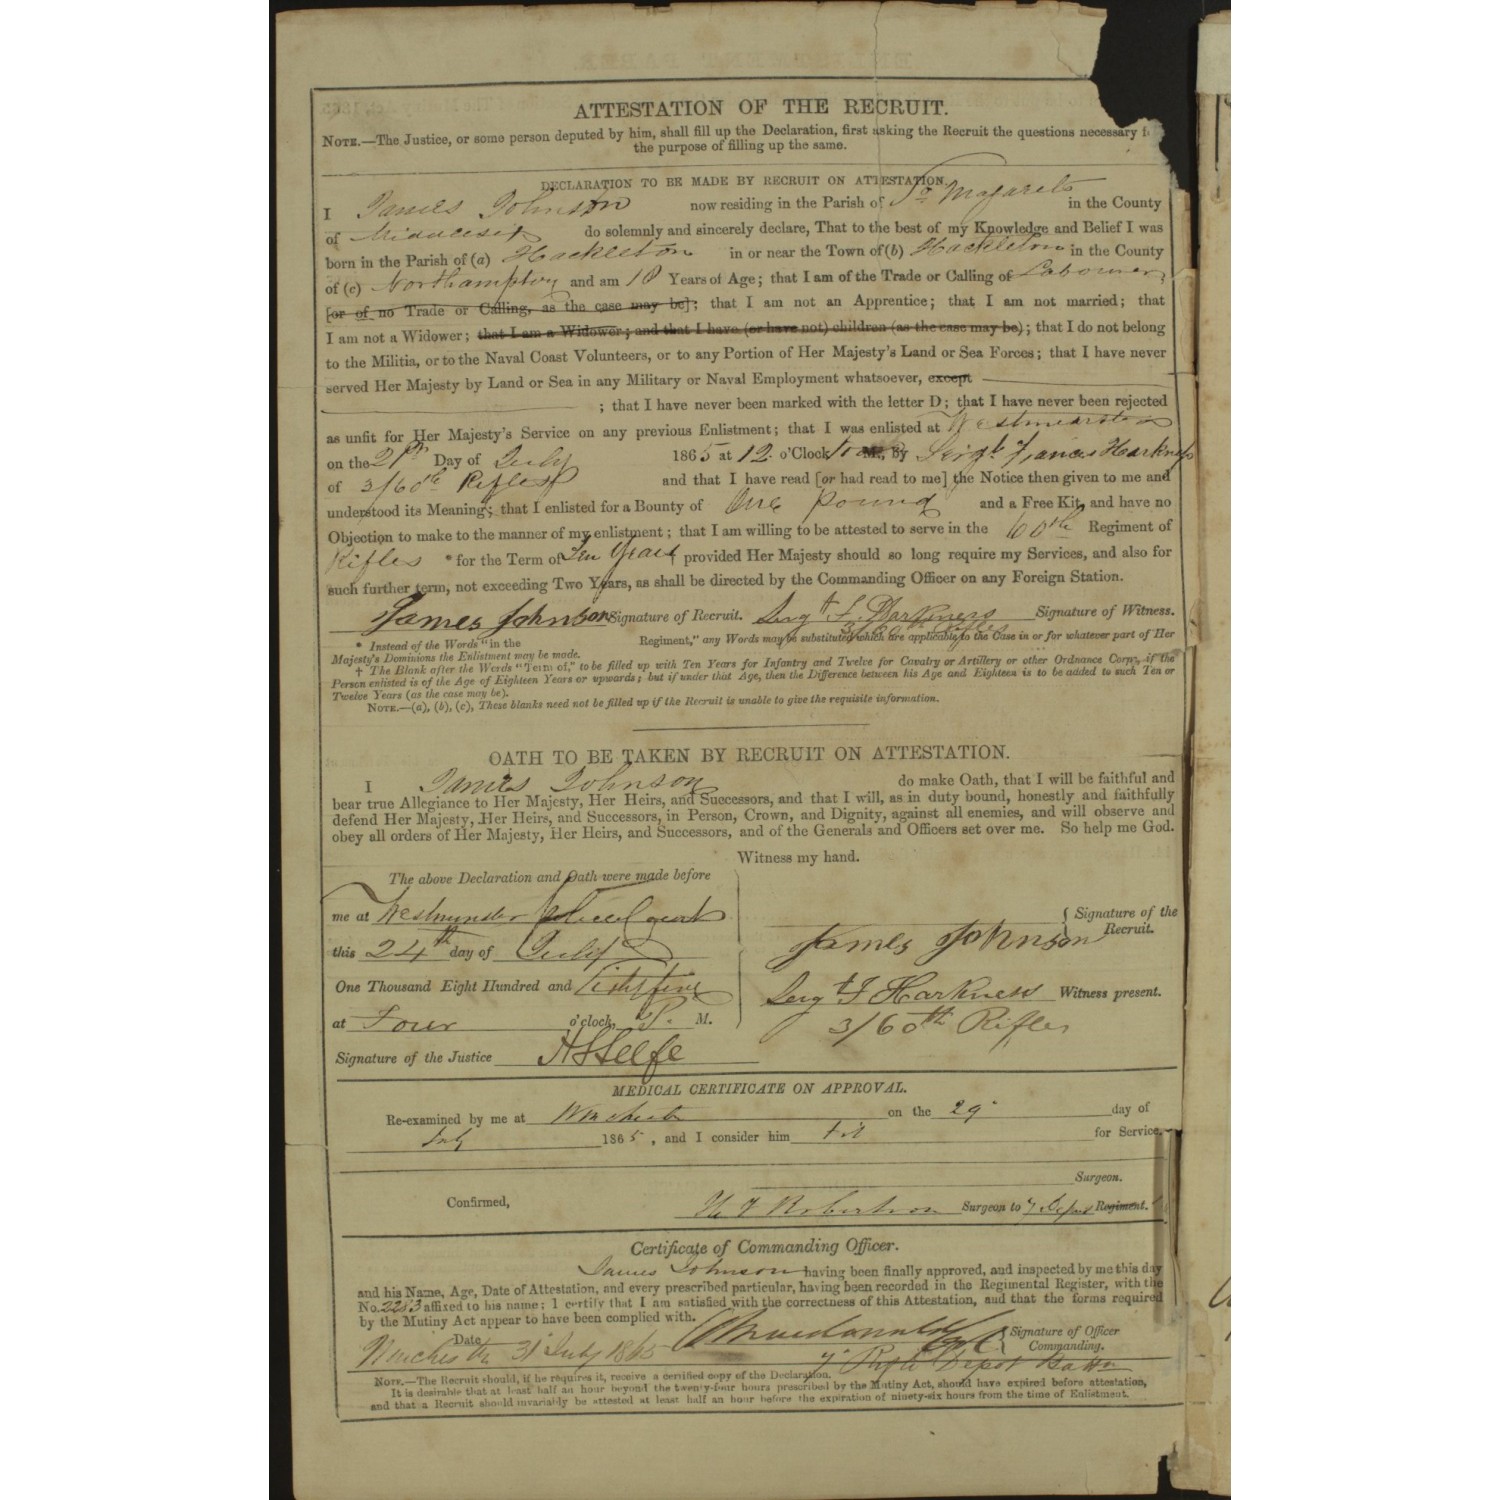 ATTESTATION OF THE RECRUIT.
NOTE.—The Justice, or some person deputed by him, shall fill up the Declaration, first asking the Recruit the questions necessary
the purpose of filling up the same.
DECLARATION TO BE MADE BY RECRUIT ON ATTESTATION.
I James Johnson now residing in the Parish of St Margarets in the County
of Middlesex do solemnly and sincerely declare, That to the best of my Knowledge and Belief I was
born in the Parish of (a) Hackleton in or near the Town of (b) Hackleton in the County
of (c) Northampton and am 18 Years of Age; that I am of the Trade or Calling of Labourer,
[or of no Trade or Calling, as the case may be]; that I am not an Apprentice; that I am not married; that
I am not a Widower; that I am a Widower; and that I have (or have not) children (as the case may be); that I do not belong
to the Militia, or to the Naval Coast Volunteers, or to any Portion of Her Majesty's Land or Sea Forces; that I have never
served Her Majesty by Land or Sea in any Military or Naval Employment whatsoever, except
; that I have never been marked with the letter D; that I have never been rejected
as unfit for Her Majesty's Service on any previous Enlistment; that I was enlisted at Westminster
on the 21st Day of July 1865 at 12 o'Clock M., by Sergt Francis Harkness
of 3/60th Rifles and that I have read [or had read to me] the Notice then given to me and
understood its Meaning; that I enlisted for a Bounty of One pound and a Free Kit, and have no
Objection to make to the manner of my enlistment; that I am willing to be attested to serve in the 60th Regiment of
Rifles * for the Term of Ten Years † provided Her Majesty should so long require my Services, and also for
such further term, not exceeding Two Years, as shall be directed by the Commanding Officer on any Foreign Station.
James Johnson Signature of Recruit. Sergt F. Harkness Signature of Witness.
3/60th Rifles
* Instead of the Words "in the Regiment," any Words may be substituted which are applicable to the Case in or for whatever part of Her
Majesty's Dominions the Enlistment may be made.
† The Blank after the Words "Term of," to be filled up with Ten Years for Infantry and Twelve for Cavalry or Artillery or other Ordnance Corps, if the
Person enlisted is of the Age of Eighteen Years or upwards; but if under that Age, then the Difference between his Age and Eighteen is to be added to such Ten or
Twelve Years (as the case may be).
NOTE.—(a), (b), (c), These blanks need not be filled up if the Recruit is unable to give the requisite information.
OATH TO BE TAKEN BY RECRUIT ON ATTESTATION.
I James Johnson do make Oath, that I will be faithful and
bear true Allegiance to Her Majesty, Her Heirs, and Successors, and that I will, as in duty bound, honestly and faithfully
defend Her Majesty, Her Heirs, and Successors, in Person, Crown, and Dignity, against all enemies, and will observe and
obey all orders of Her Majesty, Her Heirs, and Successors, and of the Generals and Officers set over me. So help me God.
Witness my hand.
The above Declaration and Oath were made before
me at Westminster Police Court
this 24th day of July
One Thousand Eight Hundred and Sixty five
at Four o'clock, P. M.
Signature of the Justice
Signature of the
Recruit.
James Johnson
Sergt F Harkness Witness present.
3/60th Rifles
MEDICAL CERTIFICATE ON APPROVAL.
Re-examined by me at Winchester on the 29 day of
July 1865, and I consider him fit for Service.
Surgeon.
Confirmed, Robertson Surgeon to 7 Depot Regiment.
Certificate of Commanding Officer.
James Johnson having been finally approved, and inspected by me this day
and his Name, Age, Date of Attestation, and every prescribed particular, having been recorded in the Regimental Register, with the
No. 2283 affixed to his name; I certify that I am satisfied with the correctness of this Attestation, and that the forms required
by the Mutiny Act appear to have been complied with.
Date Winchester 31 July 1865
Signature of Officer
Commanding.
7 Rifle Depot Battn
NOTE.—The Recruit should, if he requires it, receive a certified copy of the Declaration.
It is desirable that at least half an hour beyond the twenty-four hours prescribed by the Mutiny Act, should have expired before attestation,
and that a Recruit should invariably be attested at least half an hour before the expiration of ninety-six hours from the time of Enlistment.